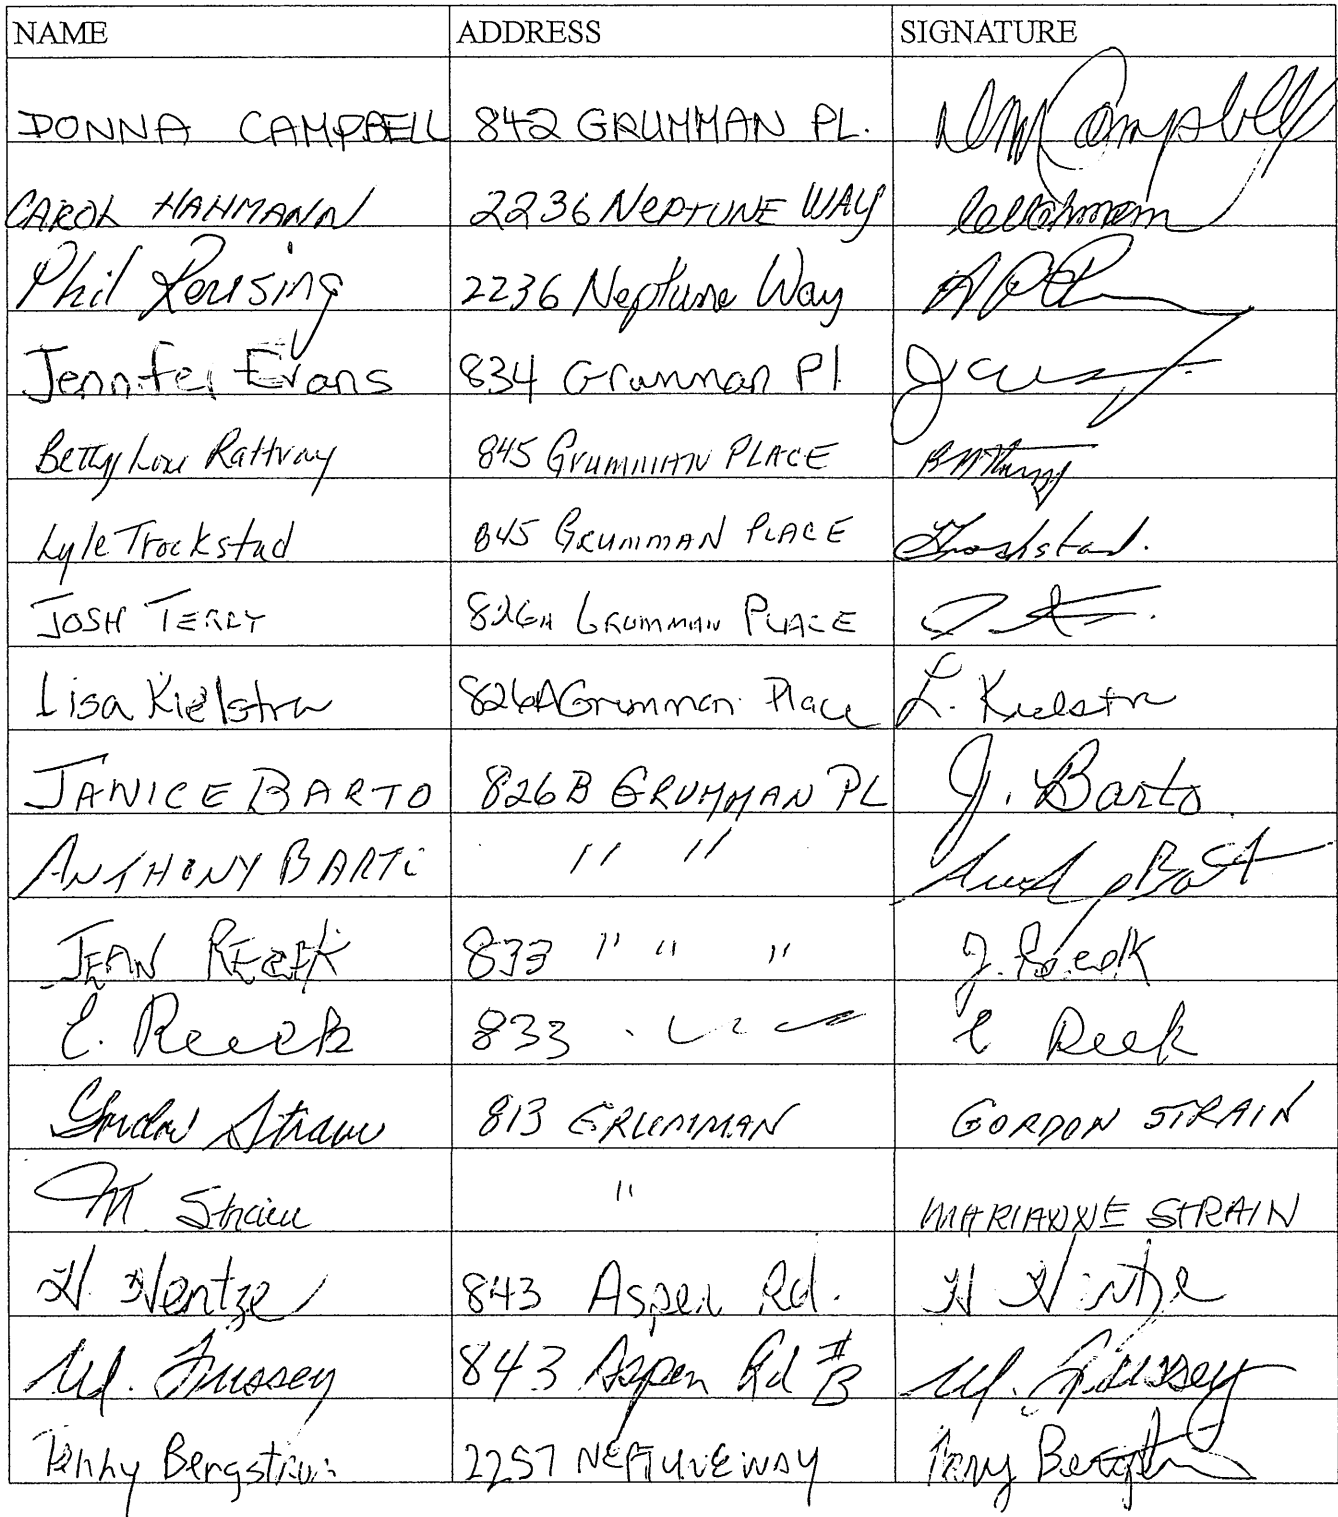 NAME ADDRESS SIGNATURE
DONNA CAMPBELL 842 GRUMMAN PL. DM Campbell
CAROL HAHMANN 2236 NEPTUNE WAY
Phil 2236 Neptune Way
Jennifer Evans 834 Grumman Pl.
Betty Lou Rattray 845 Grumman PLACE
Lyle Trockstad 845 GRUMMAN PLACE Trockstad.
JOSH TERRY 826A GRUMMAN PLACE
Lisa Kielstra 826A Grumman Place L. Kielstra
JANICE BARTO 826B GRUMMAN PL J. Barto
ANTHONY BARTO " "
JEAN REZEK 833 " " " J.
E. 833 E
Gordon Strain 813 GRUMMAN GORDON STRAIN
M. Strain " MARIANNE STRAIN
H. 843 Aspen Rd. H
M. Fussey 843 Aspen Rd #B M. Fussey
Penny Bergstrom 2257 NEPTUNE WAY Penny